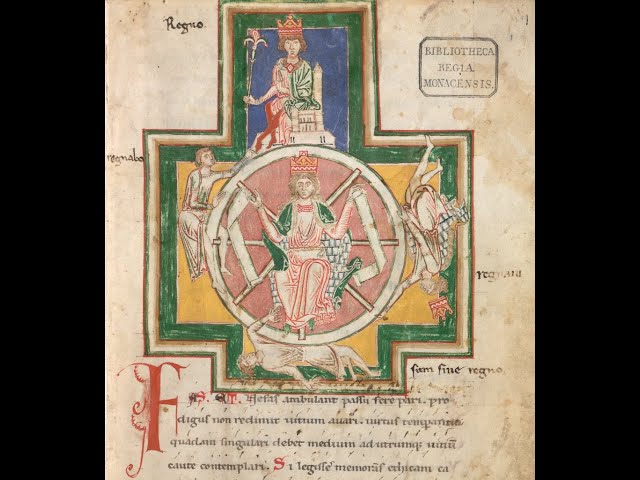 Regno.
BIBLIOTHECA
REGIA
MONACENSIS.
regnabo
regnaui
sum sine regno
FAS. ET. Nefas ambulant passu fere pari. pro
digus non redimit uitium auari. uirtus temperantia
quadam singulari debet medium ad utrumque uitiũ
caute contemplari. Si legisse memoras ethicam ca